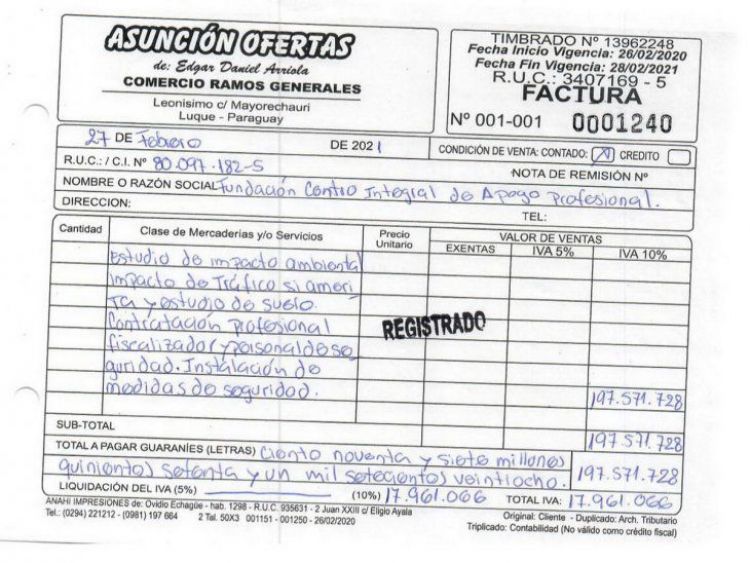 ASUNCIÓN OFERTAS
de: Edgar Daniel Arriola
COMERCIO RAMOS GENERALES
Leonisimo c/ Mayorechauri
Luque - Paraguay
TIMBRADO Nº 13962248
Fecha Inicio Vigencia: 26/02/2020
Fecha Fin Vigencia: 28/02/2021
R.U.C.: 3407169 - 5
FACTURA
Nº 001-001 0001240
27 DE Febrero DE 2021
CONDICIÓN DE VENTA: CONTADO: X CREDITO
R.U.C.: / C.I. Nº 80.097.182-5
NOTA DE REMISIÓN Nº
NOMBRE O RAZÓN SOCIAL Fundación Centro Integral de Apogo Profesional.
DIRECCION:
TEL:
Cantidad Clase de Mercaderias y/o Servicios Precio Unitario VALOR DE VENTAS
EXENTAS IVA 5% IVA 10%
Estudio de impacto ambiental
impacto de Tráfico si ameri
ta y estudio de suelo.
Contratación Profesional
fiscalizador y personal de se
guridad. Instalación de
medidas de seguridad.
REGISTRADO
197.571.728
SUB-TOTAL 197.571.728
TOTAL A PAGAR GUARANÍES (LETRAS) Ciento noventa y siete millones
quinientos setenta y un mil setecientos veintiocho. 197.571.728
LIQUIDACIÓN DEL IVA (5%) (10%) 17.961.066 TOTAL IVA: 17.961.066
ANAHI IMPRESIONES de: Ovidio Echagüe - hab. 1298 - R.U.C. 935631 - 2 Juan XXIII c/ Eligio Ayala
Tel.: (0294) 221212 - (0981) 197 664 2 Tal. 50X3 001151 - 001250 - 26/02/2020
Original: Cliente - Duplicado: Arch. Tributario
Triplicado: Contabilidad (No válido como crédito fiscal)